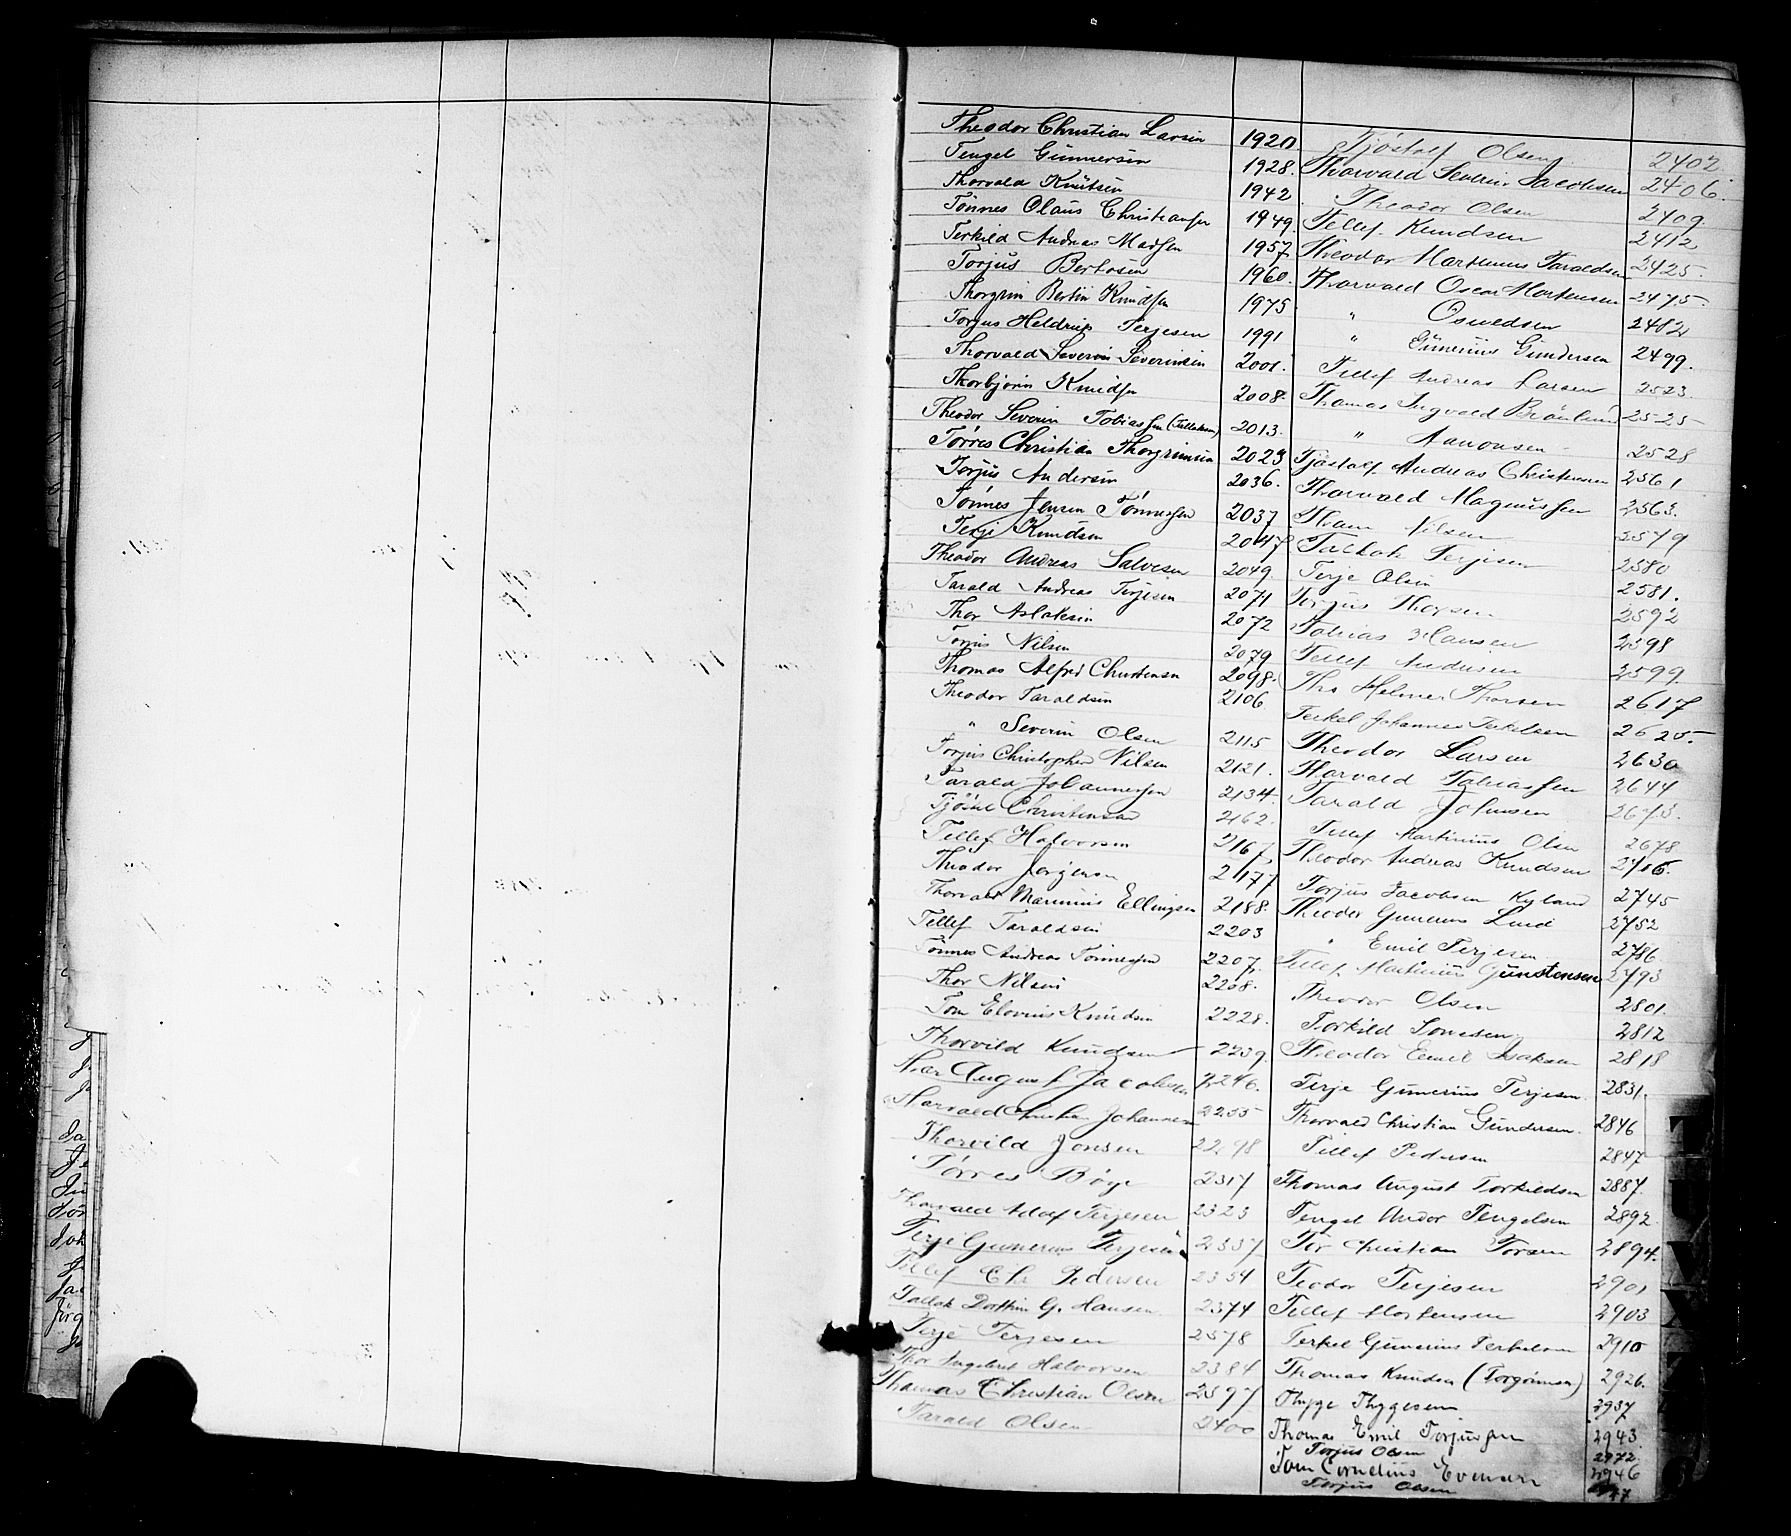 Theodor Christian Larsen 1920.
Tengel Gunnersen 1928.
Thorvald Knutsen 1942
Tönnes Olaus Christiansen 1949.
Terkild Andreas Madsen 1957
Torjus Bertosen 1960.
Thorgrim Bertin Knudsen 1975
Torjus Heldrup Terjesen 1991
Thorvald Severin Severinsen 2001.
Thorbjørn Knudsen 2008.
Theodor Severin Tobiassen 2013.
Tørres Christian Thorgrimsen 2023
Torjus Andersen 2036.
Tønnes Jensen Tönnessen 2037
Terje Knudsen 2047
Theodor Andreas Salvesen 2049
Tarald Andreas Terjesen 2071
Thor Aslaksen 2072
Torjus Nilsen 2079
Thomas Alfred Christensen 2098.
Theodor Taraldsen 2106
" Severin Olsen 2115
Torjus Christopher Nilsen 2121.
Tarald Johannessen 2134.
Christensen 2162.
Tellef Halvorsen 2167
Theodor Jørgensen 2177
Thorvald Marinius Ellingsen 2188.
Tellef Taraldsen 2203
Tønnes Andreas Tönnessen 2207
Thor Nilsen 2208.
Tom Knudsen 2228.
Thorvild Knudsen 2239.
August Jacobsen 2246.
Harvald Christian Johannesen 2255
Thorvild Jonsen 2298
Tørres Böye 2317
Thorvald Adolf Terjesen 2323
Terje Gunerius Terjesen 2337
Tellef Chr Pedersen 2354
Tallak Dorthin G. Hansen 2374
Terje Terjesen 2378
Thor Ingebret Halvorsen 2384
Thomas Christian Olsen 2397
Tarald Olsen 2400
Tjöstolf Olsen 2402
Thorvald Severin Jacobsen 2406.
Theodor Olsen 2409
Tellef Knudsen 2412
Theodor Martinius Taraldsen 2425.
Thorvald Oscar Mortensen 2475.
" Osvedsen 2482
" Gunerius Gundersen 2499.
Tellef Andreas Larsen 2523
Thomas Ingvald 2525
" Aanonsen 2528
Tjöstolf Andreas Christensen 2561
Thorvald Magnussen 2563.
Nilsen 2579
Tallak Terjesen 2580
Terje Olsen 2581.
Torjus Thorsen 2592
Tobias Hansen 2598
Tellef Andersen 2599
Helmer Thorsen 2617
Terkel Johannes Terkelsen 2625
Theodor Larsen 2630
Thorvald Tobiassen 2644
Tarald Johnsen 2673.
Tellef Martinius Olsen 2678
Theodor Andreas Knudsen 2716.
Torjus Jacobsen Kyland 2745
Theodor Gunerius Lund 2752
" Emil Terjesen 2786
Tellef Martinius Gunstensen 2793
Theodor Olsen 2801.
Torkild 2812
Theodor Emil Isaksen 2818
Terje Gunerius Terjesen. 2831.
Thorvald Christian Gundersen. 2846
Tellef Pedersen 2847
Thomas August Torkildsen 2887.
Tengel Andor Tengelsen 2892.
Tor Christian Torsen 2894.
Teodor Terjesen 2901
Tellef Mortensen 2903
Terkel Gunerius Terkelsen 2910
Thomas Knudsen (Torgrimsen) 2926.
Thyge Thygesen 2937
Thomas Emil Torjussen 2943.
Torjus Olsen 2972
Tom Cornelius Evensen 2946
Torjus Olsen